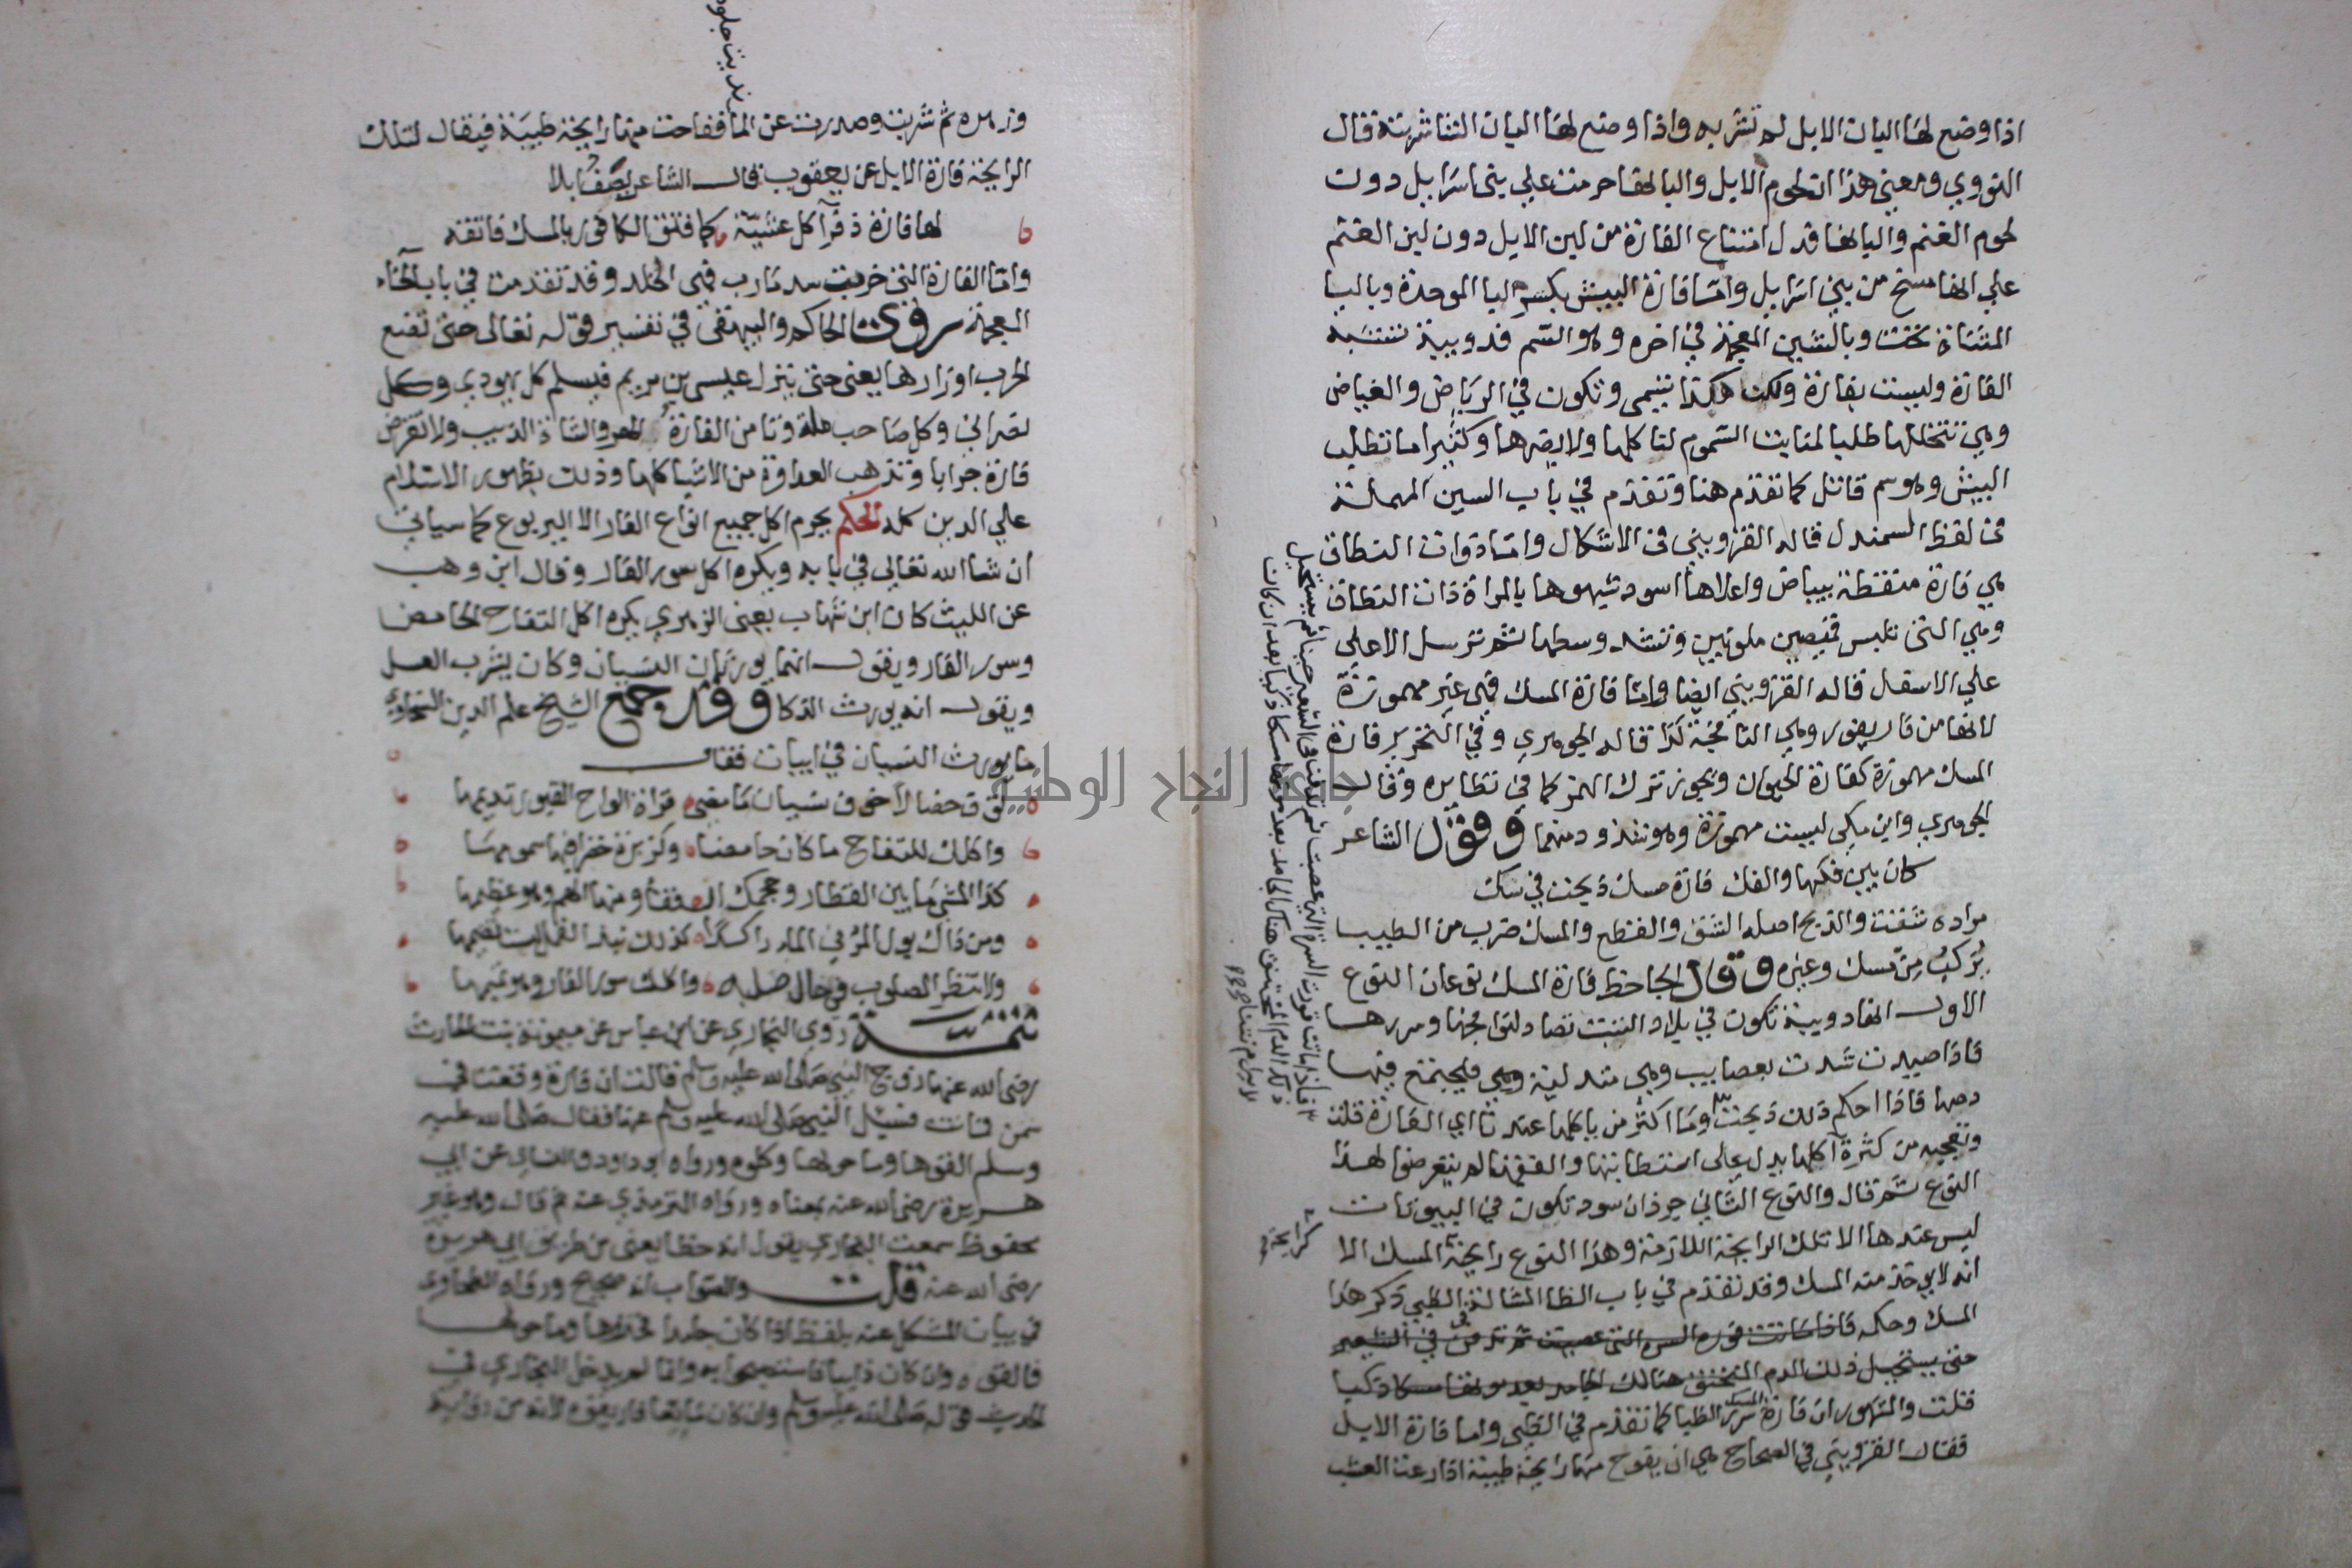 اذا وضع لها البان الابل لم تشربه واذا وضع لها البان الشا شربته قال
النووي ومعنى هذا ان لحوم الابل والبانها حرمت علي بني اسرايل دون
لحوم الغنم والبانها فدل امتناع الفارة من لبن الابل دون لبن الغنم
علي انها مسخ من بني اسرايل واما فارة البيش بكسر البا الموحدة وباليا
المثناة تحت وبالشين المعجمة في اخره وهو السم فدويبة تشبه
الفارة وليست بفارة ولكن هكذا تسمى وتكون في الرياض والغياض
وهي تتخللها طلبا لمنابت السموم لتاكلها ولا يضرها وكثيرا ما تطلب
البيش وهو سم قاتل كما تقدم هنا وتقدم في باب السين المهملة
في لفظ السمندل قاله القزويني في الاشكال واما ذوات النطاق
هي فارة منقطة ببياض واعلاها اسود شبهوها بالمراة ذات النطاق
وهي التي تلبس قميصين ملونين وتشد وسطها ثم ترسل الاعلي
علي الاسفل قاله القزويني ايضا واما فارة المسك فهي غير مهموزة
لانها من فار يفور وهي النافجة كذا قاله الجوهري وفي التحرير فارة
المسك مهموزة كفارة الحيوان ويجوز ترك الهمز كما في نظايره وقال
الجوهري وابن مكي ليست مهموزة وهو شذوذ منهما وقول الشاعر
كان بين فكها والفك فارة مسك ذبحت في سك
مراده شقت والذبح اصله الشق والقطع والمسك ضرب من الطيب
يركب من مسك وغيره وقال الجاحظ فارة المسك نوعان النوع
الاول انها دويبة تكون في بلاد التبت تصاد لنوافجها وسررها
فاذا صيدت شدت بعصايب وهي متدلية وهي فيجتمع فيها
دمها فاذا احكم ذلك ذبحت وما اكثر من ياكلها عندنا اي الفارة قلت
وتعجبه من كثرة اكلها يدل علي استطابتها والفقها لم يتعرضوا لهذا
النوع ثم قال والنوع الثاني جرذان سود تكون في البيوت
ليس عندها الا تلك الرايحة اللازمة وهذا النوع رايحة المسك الا
انه لا يوخذ منه المسك وقد تقدم في باب الظا المشالة في الظبي ذكر هذا
المسك وحكمه فاذا ماتت قورت السرة التي عصبت ثم تدفن في الشعير
حتى يستحيل ذلك الدم المختنق هنالك الجامد بعد موتها مسكا ذكيا
قلت والمشهور ان فارة المسك سرر الظبا كما تقدم في الظبي واما فارة الابل
فقال القزويني في الصحاح هي ان يفوح منها رايحة طيبة اذا رعت العشب
فاذا ماتت قورت السرة التي عصبت ثم تدفن في الشعير حينا ثم يستحيل
ذلك الدم المختنق هناك الجامد بعد موتها مسكا ذكيا بعد ان كان
لا يرام نتنا
وزهره ثم شربت وصدرت عن الما ففاحت منها رايحة طيبة فيقال لتلك
الرايحة فارة الابل عن يعقوب قال الشاعر يصف ابلا
لها فارة ذفرا كل عشية كما فتق الكافور بالمسك فاتقه
واما الفارة التي خربت سد مارب فهي الخلد وقد تقدمت في باب الخاء
المعجمة روى الحاكم والبيهقي في تفسير قوله تعالى حتى تضع
الحرب اوزارها يعني حتى ينزل عيسى بن مريم فيسلم كل يهودي وكل
نصراني وكل صاحب ملة وتامن الفارة الهر والشاة الذيب ولا تقرض
فارة جرابا وتذهب العداوة من الاشيا كلها وذلك بظهور الاسلام
علي الدين كله الحكم يحرم اكل جميع انواع الفار الا اليربوع كما سياتي
ان شا الله تعالي في بابه ويكره اكل سور الفار وقال ابن وهب
عن الليث كان ابن شهاب يعني الزهري يكره اكل التفاح الحامض
وسور الفار ويقول انهما يورثان النسيان وكان يشرب العسل
ويقول انه يورث الذكا وقد جمع الشيخ علم الدين السخاوي
ما يورث النسيان في ابيات فقال
توق خصالا خوف نسيان ما مضى قراة الواح القبور تديمها
واكلك للتفاح ما كان حامضا وكزبرة خضرا فيها سمومها
كذا المشي ما بين القطار وحجمك القفا ومنها الهم وهو عظيمها
ومن ذاك بول المر في الما راكدا كذلك نبذ القمل لست تقيمها
ولا تنظر المصلوب في حال صلبه واكلك سور الفار وهو تميمها
تتمة روي البخاري عن ابن عباس عن ميمونة بنت الحارث
رضي الله عنها زوج النبي صلى الله عليه وسلم قالت ان فارة وقعت في
سمن فماتت فسئل النبي صلى الله عليه وسلم عنها فقال صلى الله عليه
وسلم القوها وما حولها وكلوه ورواه ابو داود والنساي عن ابي
هريرة رضي الله عنه بمعناه ورواه الترمذي عنه ثم قال وهو غير
محفوظ سمعت البخاري يقول انه خطا يعني من طريق ابي هريرة
رضي الله عنه قلت والصواب انه صحيح ورواه الطحاوي
في بيان المشكل عنه بلفظ اذا كان جامدا فخذوها وما حولها
فالقوه وان كان ذايبا فاستصبحوا به وانما لم يدخل البخاري في
الحديث قوله صلى الله عليه وسلم وان كان مائعا فاريقوه لانه من رواية
جامعة النجاح الوطنية